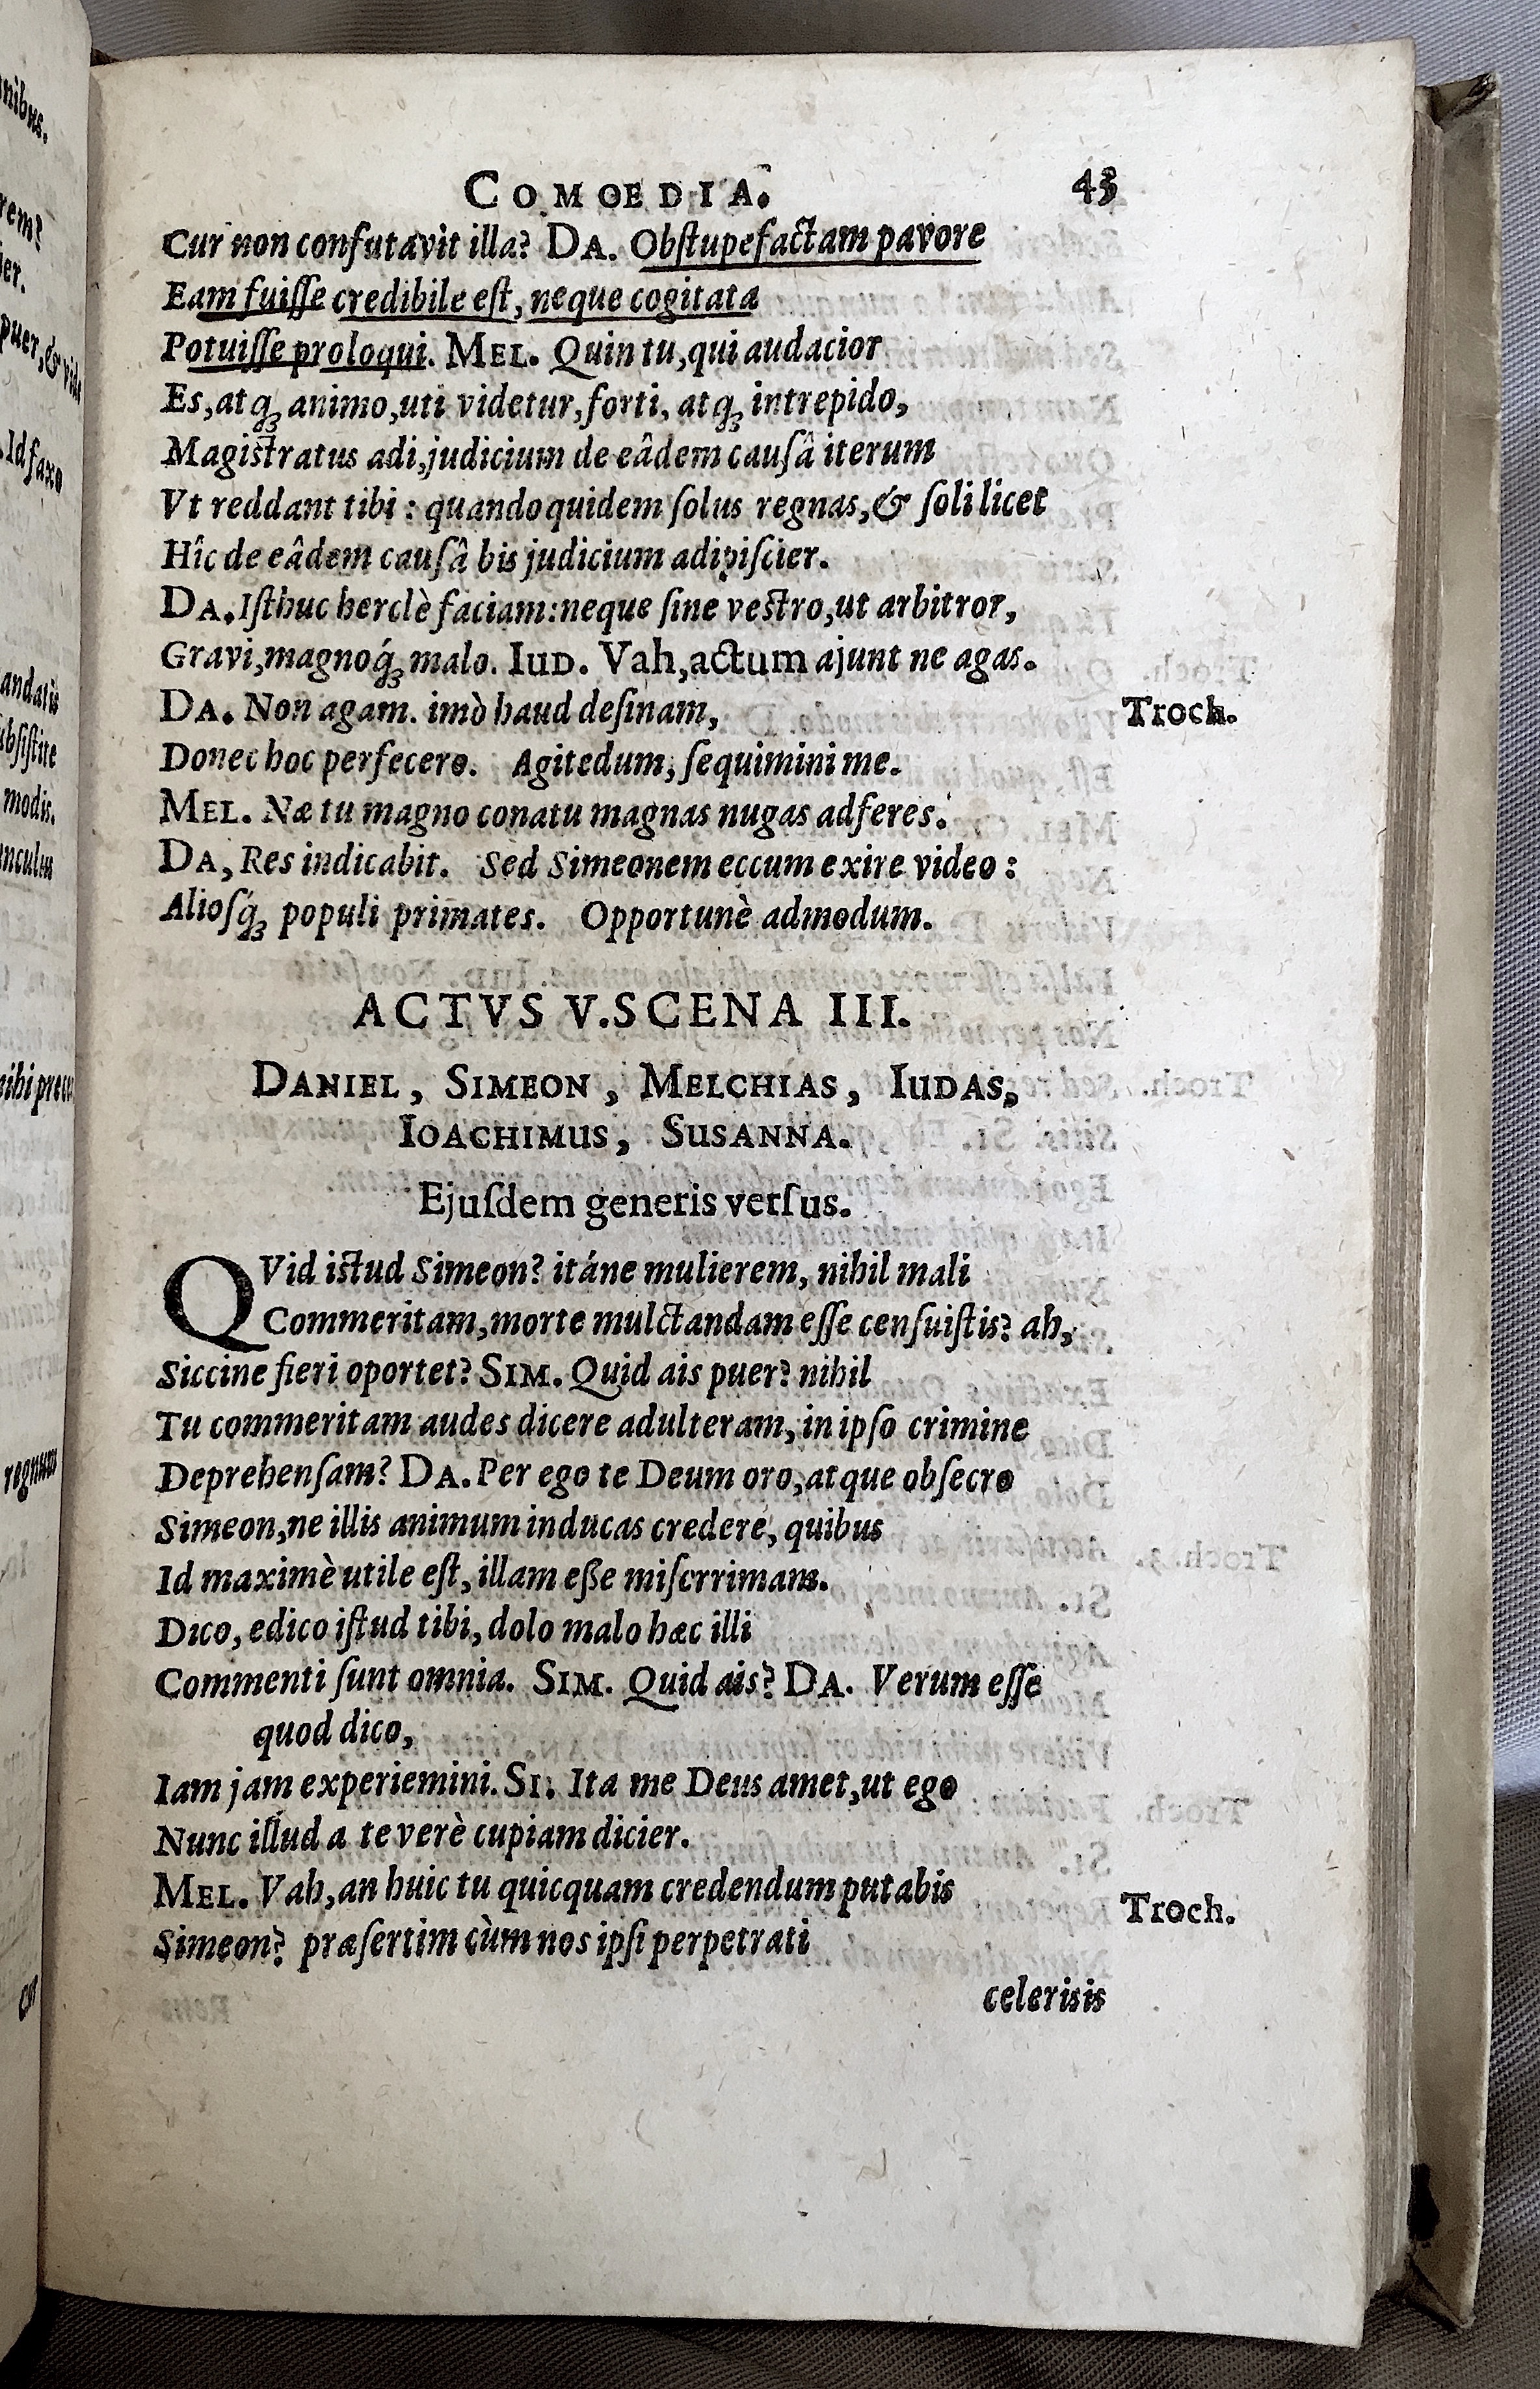 COMOEDIA. 43
Cur non confutavit illa? DA. Obstupefactam pavore
Eam fuisse credibile est, neque cogitata
Potuisse proloqui. MEL. Quin tu, qui audacior
Es, atq; animo, uti videtur, forti, atq; intrepido,
Magistratus adi, judicium de eâdem causâ iterum
Vt reddant tibi: quandoquidem solus regnas, & soli licet
Hîc de eâdem causâ bis judicium adipiscier.
DA. Isthuc herclè faciam: neque sine vestro, ut arbitror,
Gravi, magnoq́; malo. IUD. Vah, actum ajunt ne agas.
DA. Non agam. imò haud desinam, Troch.
Donec hoc perfecero. Agitedum, sequimini me.
MEL. Næ tu magno conatu magnas nugas adferes.
DA, Res indicabit. Sed Simeonem eccum exire video:
Aliosq́; populi primates. Opportunè admodum.
ACTVS V. SCENA III.
DANIEL, SIMEON, MELCHIAS, IUDAS,
IOACHIMUS, SUSANNA.
Ejusdem generis versus.
QVid istud Simeon? itáne mulierem, nihil mali
Commeritam, morte mulctandam esse censuistis? ah,
Siccine fieri oportet? SIM. Quid ais puer? nihil
Tu commeritam audes dicere adulteram, in ipso crimine
Deprehensam? DA. Per ego te Deum oro, atque obsecro
Simeon, ne illis animum inducas credere, quibus
Id maximè utile est, illam eße miserrimam.
Dico, edico istud tibi, dolo malo hæc illi
Commenti sunt omnia. SIM. Quid ais? DA. Verum esse
quod dico,
Iam jam experiemini. SI. Ita me Deus amet, ut ego
Nunc illud a te verè cupiam dicier.
MEL. Vah, an huic tu quicquam credendum putabis Troch.
Simeon? præsertim cùm nos ipsi perpetrati
celerisis